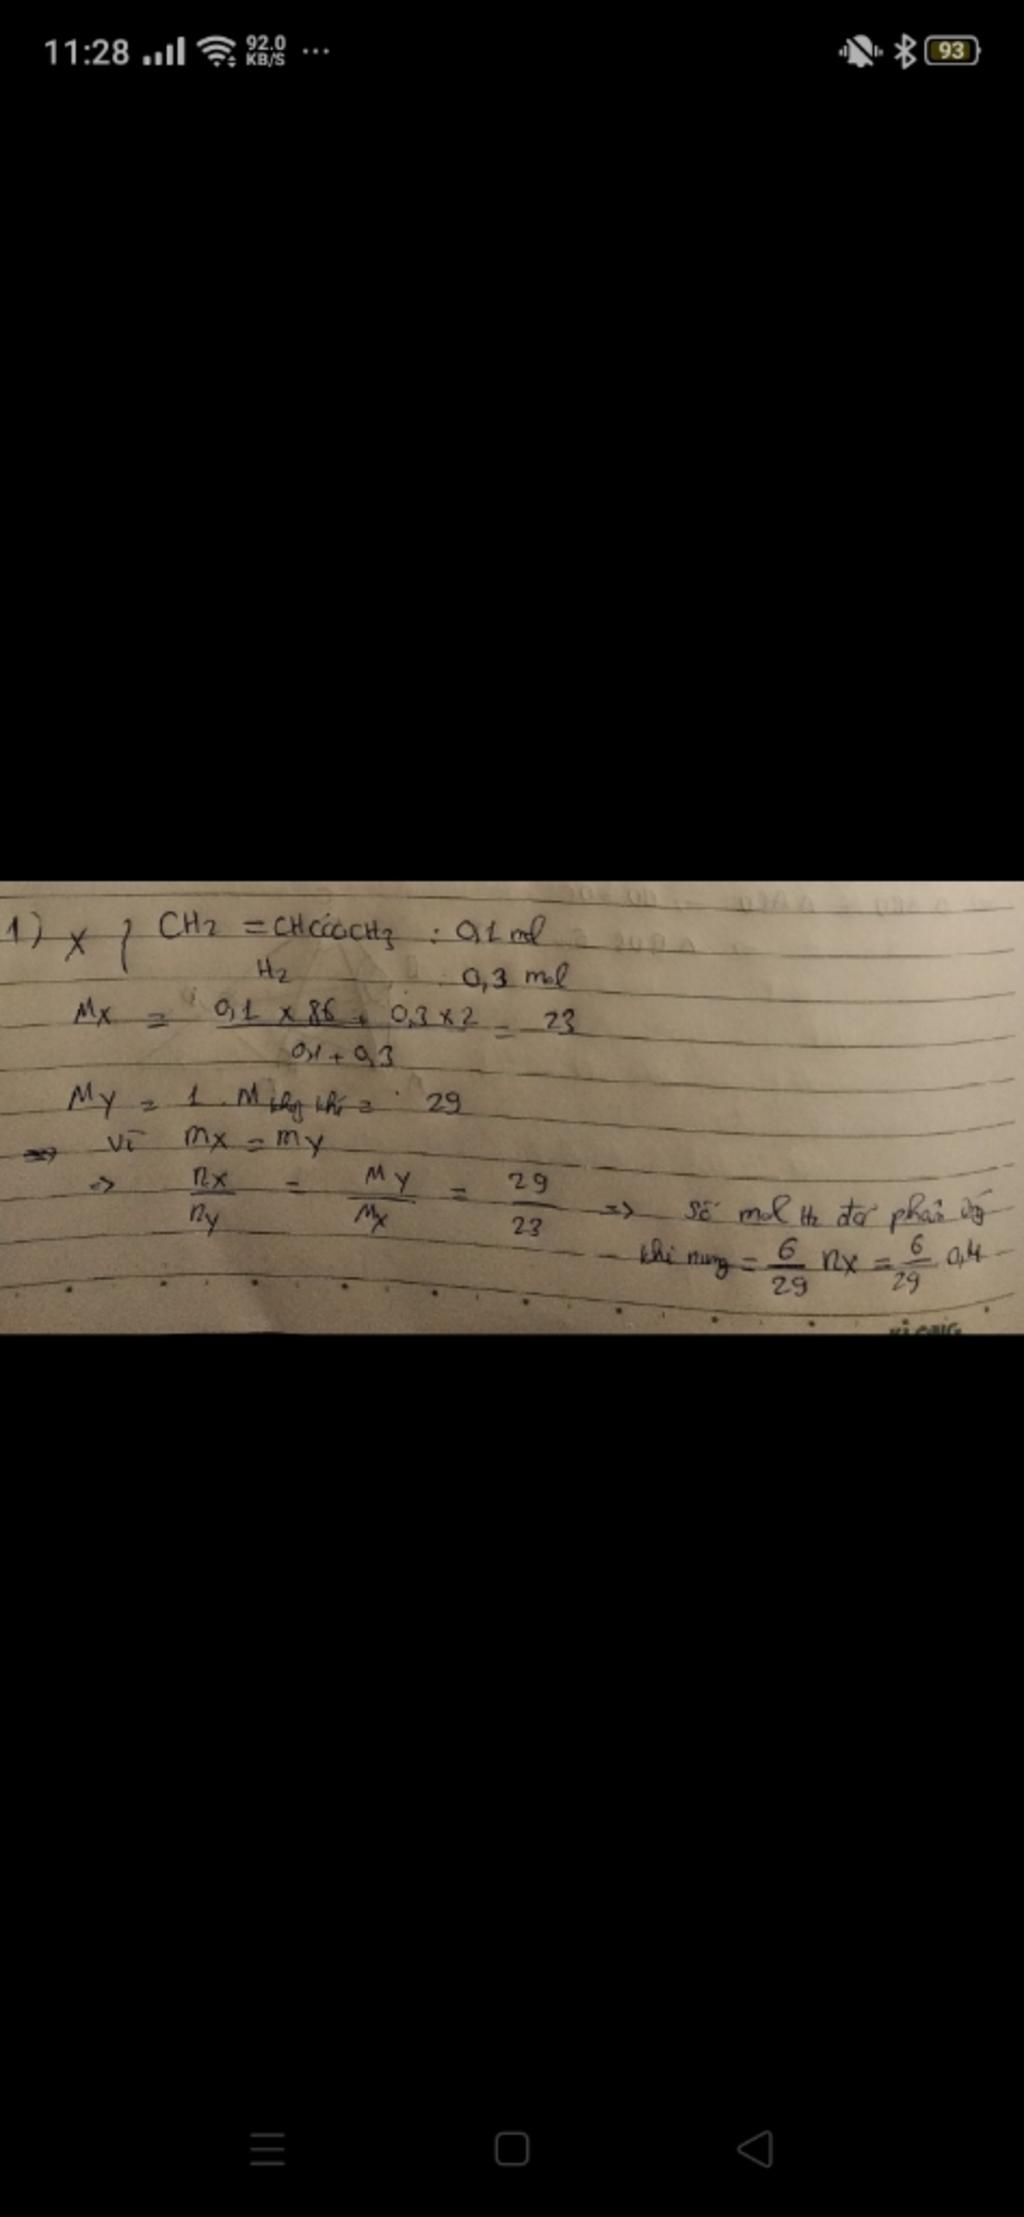 11:28 92.0 KB/S ... 93
1) X { CH2 = CHCOOCH3 : 0,1 mol
H2 : 0,3 mol
MX = 0,1 x 86 + 0,3 x 2 / 0,1 + 0,3 = 23
MY = 1 . M không khí = 29
=> Vì mX = mY
=> nX / nY = MY / MX = 29 / 23 => số mol H2 đã phản ứng
khi nung = 6 / 29 nX = 6 / 29 . 0,4